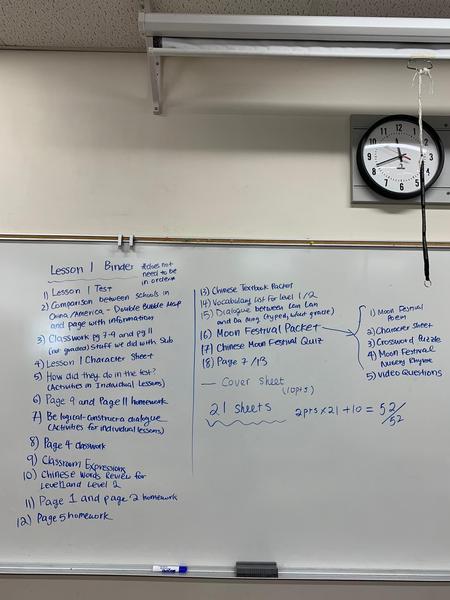 12
1
2
3
4
5
6
7
8
9
10
11
Lesson 1 Binder
*does not
need to be
in order*
1) Lesson 1 Test
2) Comparison between schools in
China/America - Double Bubble Map
and page with information
3) Classwork pg 7-9 and pg 11
(not graded) stuff we did with Sub
4) Lesson 1 Character Sheet
5) How did they do in the test?
(Activities in Individual Lessons)
6) Page 9 and Page 11 homework
7) Be logical-construct a dialogue
(Activities for individual lessons)
8) Page 4 classwork
9) Classroom Expressions
10) Chinese Words Review for
Level 1 and Level 2
11) Page 1 and page 2 homework
12) Page 5 homework
13) Chinese Textbook Packet
14) Vocabulary list for level 1/2
15) Dialogue between Lan Lan
and Da Ming (typed, what grade)
16) Moon Festival Packet
17) Chinese Moon Festival Quiz
18) Page 7/13
— Cover Sheet
(10pts.)
21 sheets
2pts x 21 + 10 = 52/52
1) Moon Festival
Poem
2) Character Sheet
3) Crossword Puzzle
4) Moon Festival
Nursery Rhyme
5) Video Questions